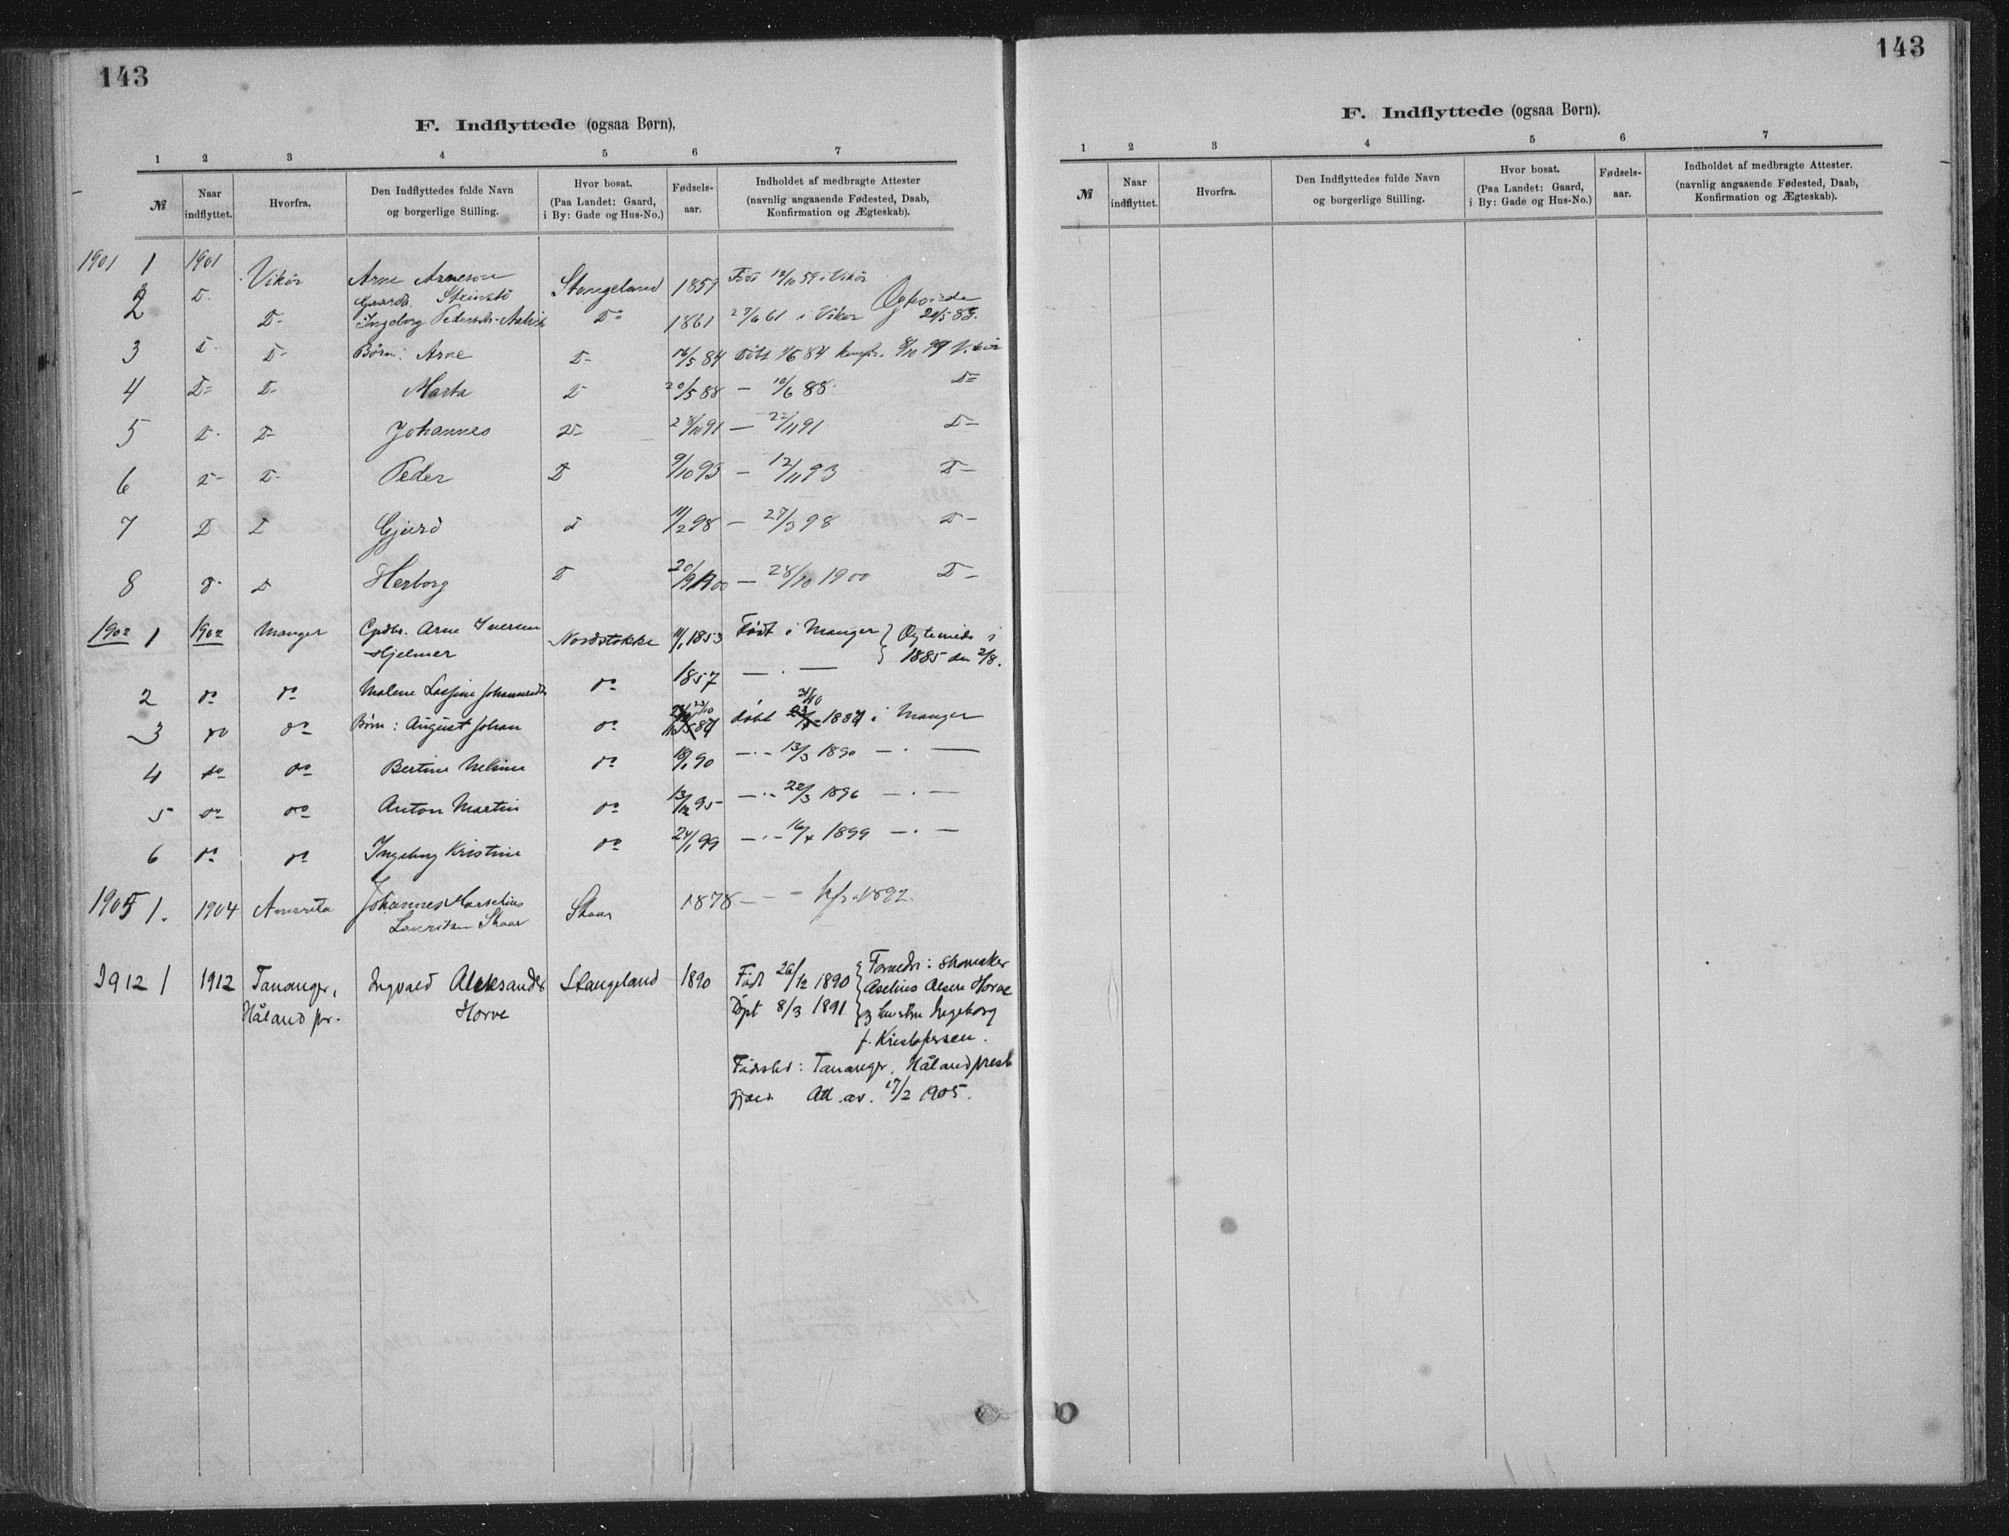 143
F. Indflyttede (ogsaa Børn),
1 2 3 4 5 6 7
№ Naar indflyttet. Hvorfra. Den Indflyttedes fulde Navn og borgerlige Stilling. Hvor bosat. (Paa Landet: Gaard, i By: Gade og Hus-No.) Fødsels-aar. Indholdet af medbragte Attester (navnlig angaaende Fødested, Daab, Konfirmation og Ægteskab).
1901 1 1901 Vikør Arne Arneson Stangeland 1859 Født 12/10 59 i Vikør
Gaardb. Steinstø
2 D- D- Ingeborg Pedersdr. D- 1861 27/6 61 i Vikør Egteviede 24/5 83.
3 D- D- Børn: Arne D- 16/5 84 Døbt 1/6 84 konf. 8/10 99 Vikør
4 D- D- Marta D- 20/5 88 — 10/6 88. D-
5 D- D- Johannes D- 28/10 91 — 22/11 91 D-
6 D- D- Peder D 9/10 93 — 12/11 93 D-
7 D D Gjerd d 11/2 98 — 27/3 98 D-
8 D- D Herborg D 20/9 1900 — 28/10 1900 D-
1902 1 1902 Manger Grdbr. Arne Iversen Nordstokke 11/1 1853 Født i Manger } Egteviede i
Hjelmer 1885 den 2/8.
2 do do Malene Lassine Johannesdtr do 1857 — . —
3 do do Børn: August Johan do 23/10 87 døbt 31/10 1887 i Manger
4 do do Bertine Nelsine do 18/1 90 — . - 13/3 1890 — . —
5 do do Anton Martin do 13/12 95 — . - 22/3 1896 — . —
6 do do Ingeborg Kristine do 24/1 99 — . - 16/4 1899 — . —
1905 1. 1904 Amerika Johannes Marselius Skaar 1878 — - kfr. 1892.
Lauritsen Skaar
1912 1 1912 Tananger, Ingvald Aleksander Stangeland 1890 Født 26/12 1890 { Foreldre: skomaker
Håland pr. Horve Døpt 8/3 1891 Aselius Olsen Horve
og hustru Ingeborg
f. Kristofersen.
Fødested: Tananger, Håland prest
gjæld Att. av. 17/2 1905.
143
F. Indflyttede (ogsaa Børn).
1 2 3 4 5 6 7
№ Naar indflyttet. Hvorfra. Den Indflyttedes fulde Navn og borgerlige Stilling. Hvor bosat. (Paa Landet: Gaard, i By: Gade og Hus-No.) Fødsels-aar. Indholdet af medbragte Attester. (navnlig angaaende Fødested, Daab, Konfirmation og Ægteskab).